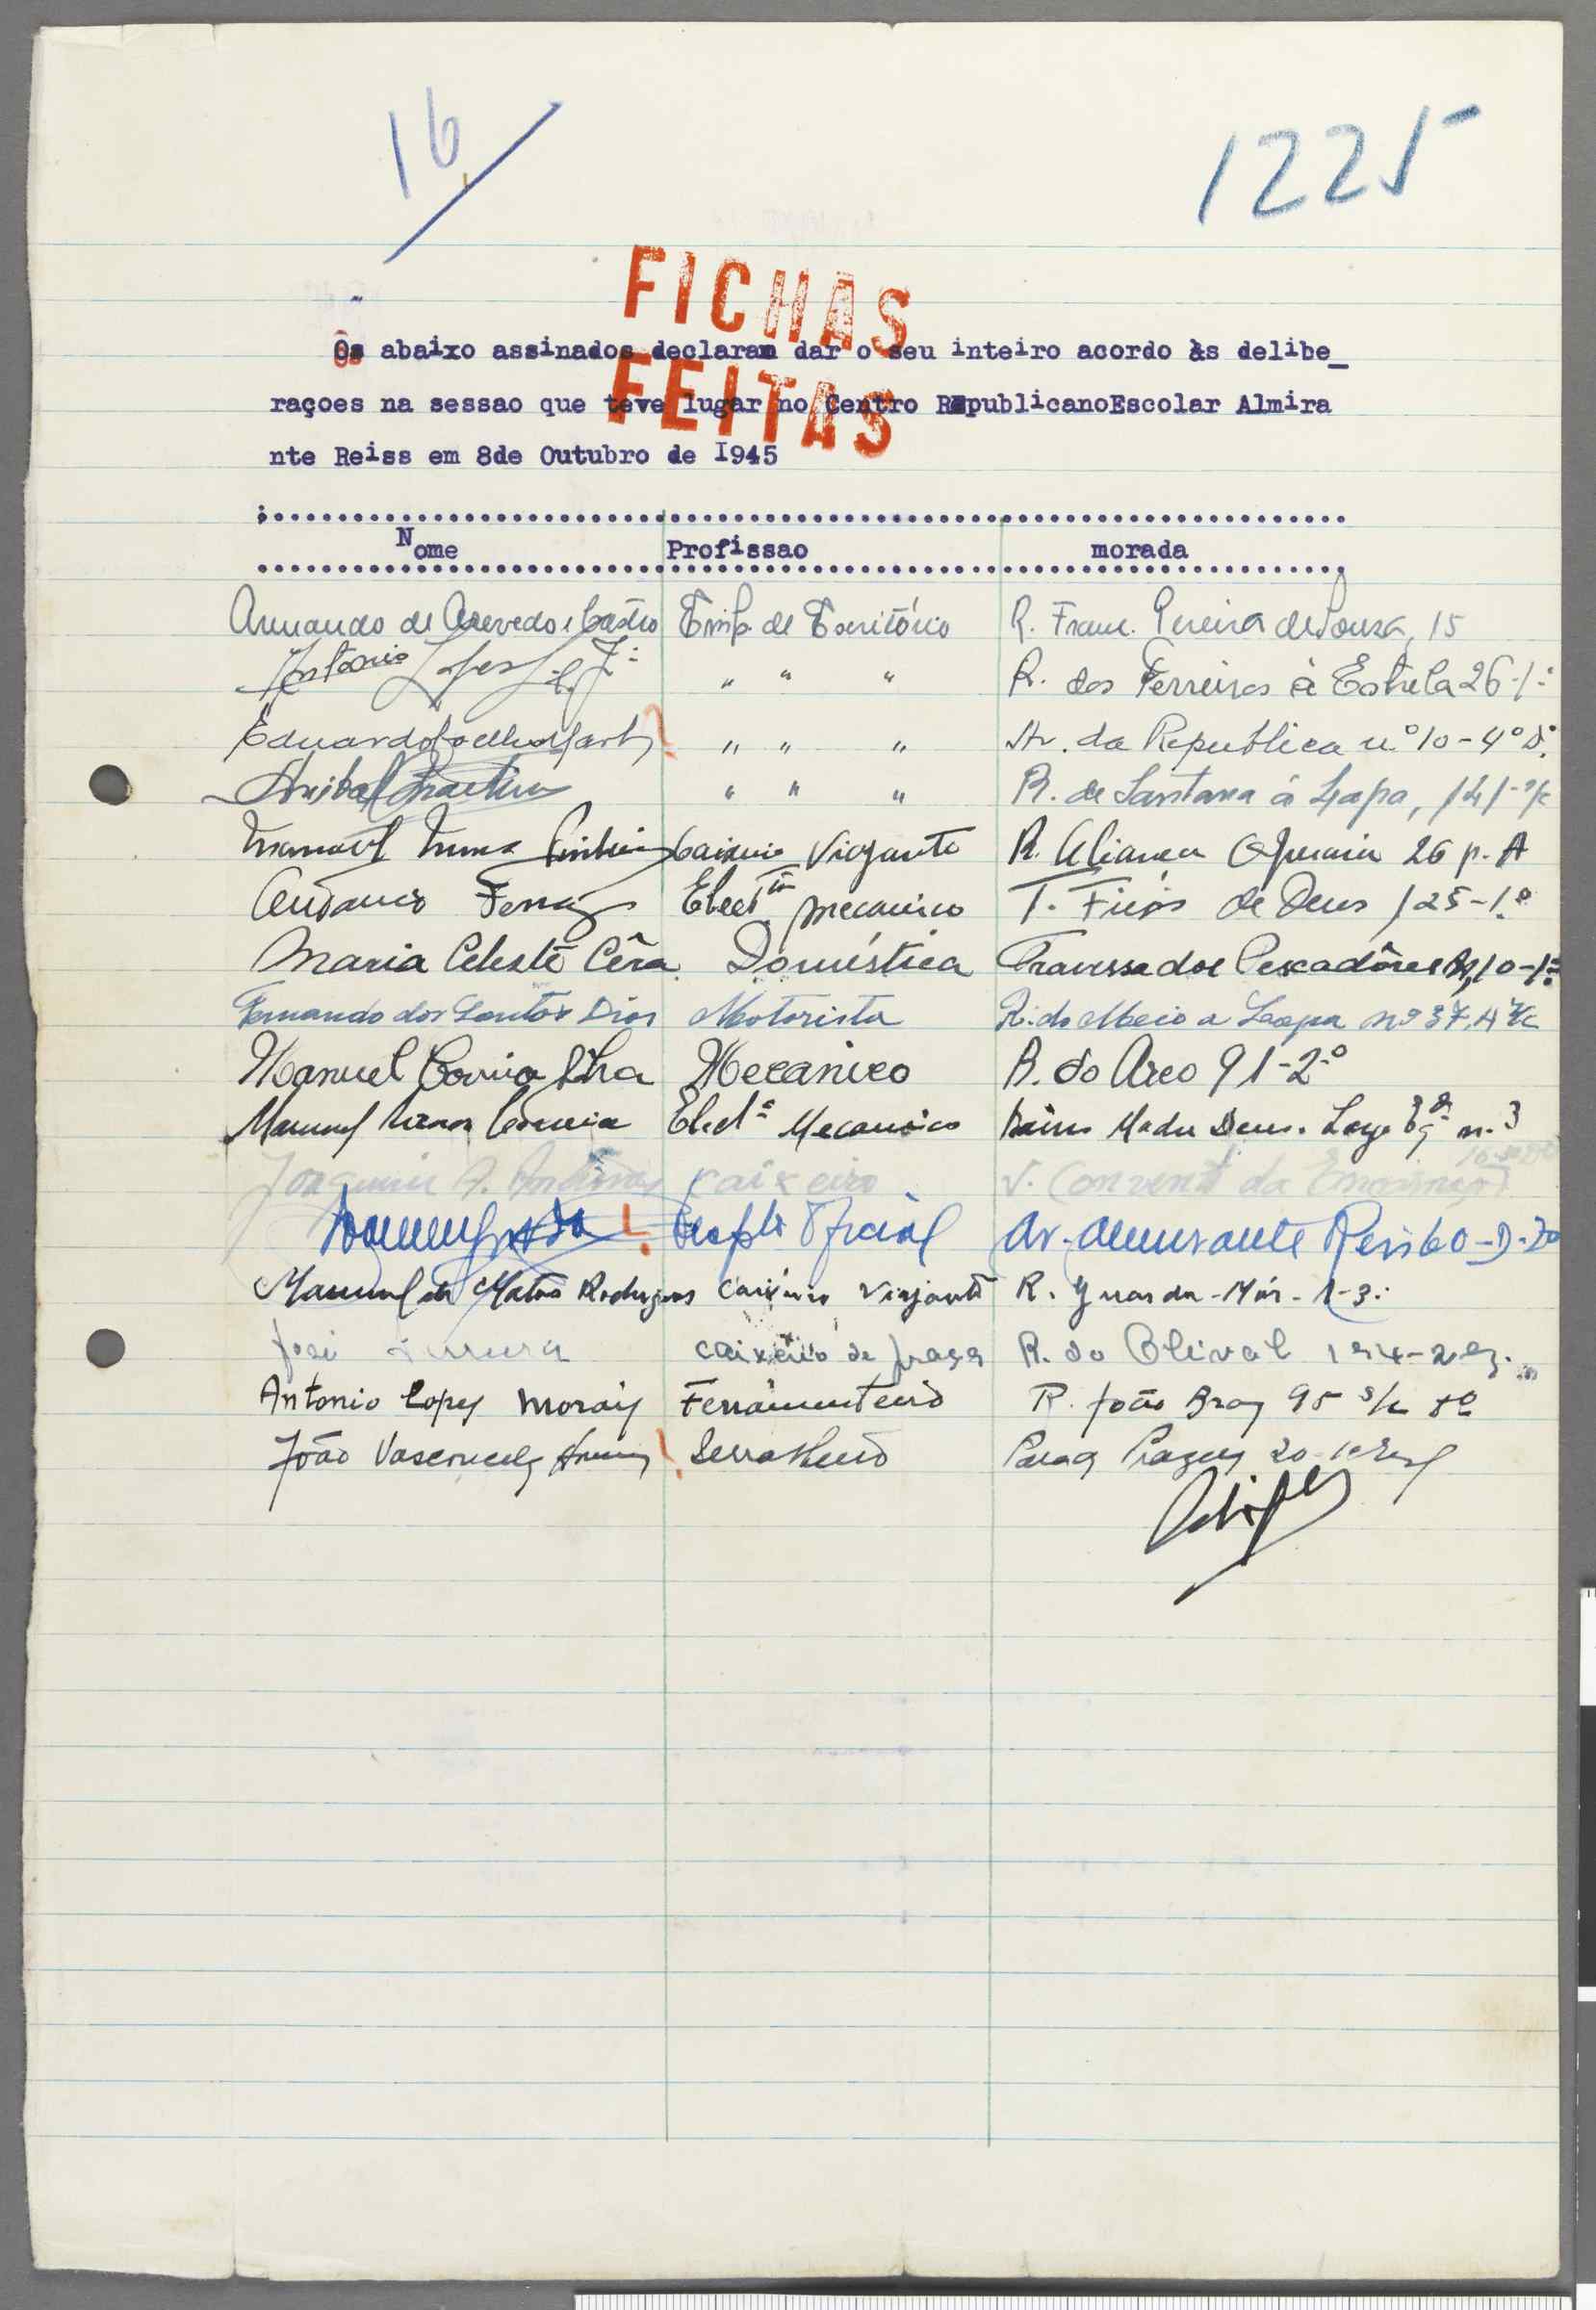 16
1225
FICHAS
FEITAS
Os abaixo assinados declaram dar o seu inteiro acordo às delibe_
raçoes na sessao que teve lugar no Centro RepublicanoEscolar Almira
nte Reiss em 8de Outubro de I945
Nome Profissao morada
Armando de Azevedo e Castro Emp. de Escritório R. Franc. Pereira de Sousa, 15
Antonio Lopes " " " R. dos Ferreiros à Estrela 26-1º
Eduardo Coelho " " " Av. da Republica nº 10-4º D.
Anibal Martins " " " R. de Santana á Lapa, 141-r/c
Manoel Nunes Caixeiro Viajante R. Aliança Operaria 26 p. A
Ferraz Mecanico T. Fieis de Deus 125-1.º
Maria Celeste Cêra Doméstica Travessa dos Pescadôres 10-1º
Fernando dos Santos Dias Motorista R. do Meio a Lapa nº 37,4 r/c
Manuel Correia Silva Mecanico R. do Arco 91-2º
Manuel Correia Mecanico Madre Deus. n. 3
Joaquim A. caixeiro Convento da Encarnação
Oficial Av. Almirante Reis 60-
Manuel de Matos Rodrigues Caixeiro Viajante R. Guarda-Mór-1-3º
José caixeiro de praça R. do Olival
Antonio Lopes Morais Ferramenteiro R. João Braz 95 s/c
João Vasconcelos Serralheiro 20